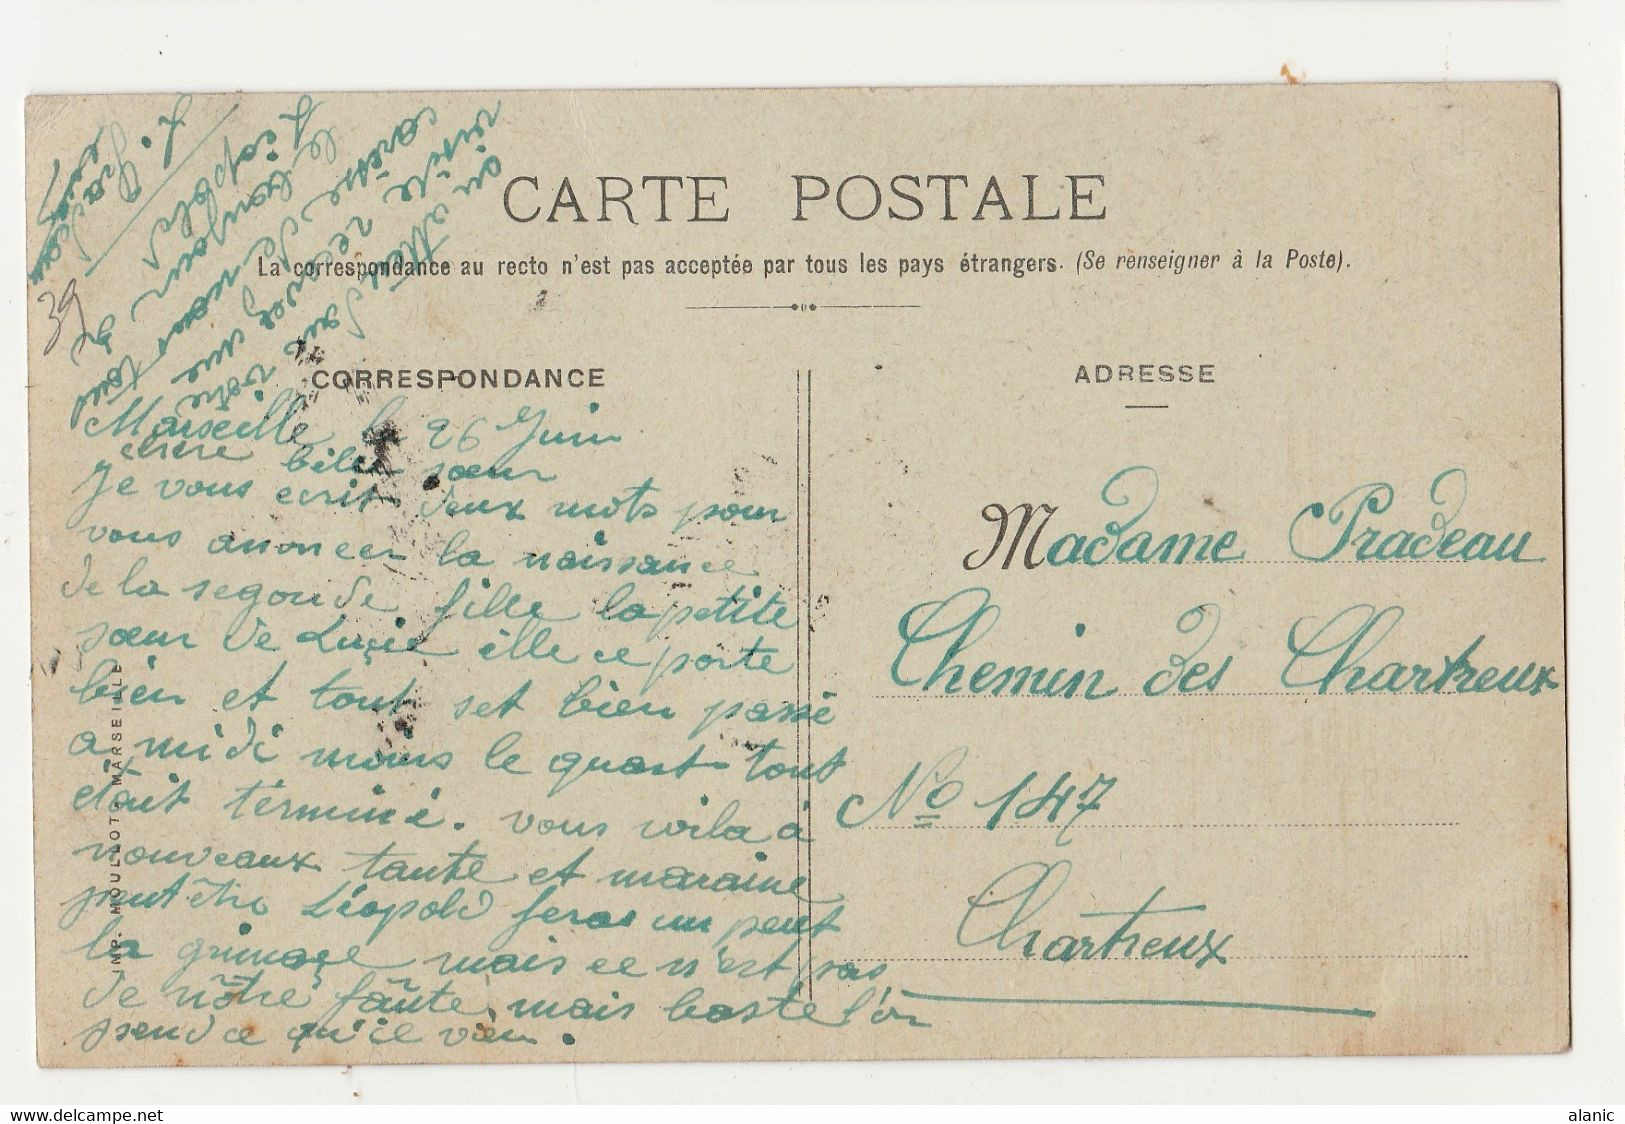 CARTE POSTALE
La correspondance au recto n'est pas acceptée par tous les pays étrangers. (Se renseigner à la Poste).
CORRESPONDANCE
Marseille le 26 Juin
chere belle sœur
Je vous ecrit deux mots pour
vous anoncer la naissance
de la segonde fille la petite
sœur de Lucie elle ce porte
bien et tout set bien passé
a midi moins le quart tout
etait terminé. vous voila à
nouveaux tante et maraine
peut être Léopold feras un peut
la grimace mais ce n'est pas
de nôtre faute mais baste l'on
prend ce qu'il vien.
on attend
votre
visite recevez une
caresse de nous tous
le bonjour de
Léopold
39
ADRESSE
Madame Pradeau
Chemin des Chartreux
No 147
Chartreux
IMP. MOULLOT, MARSEILLE
delcampe.net
alanic